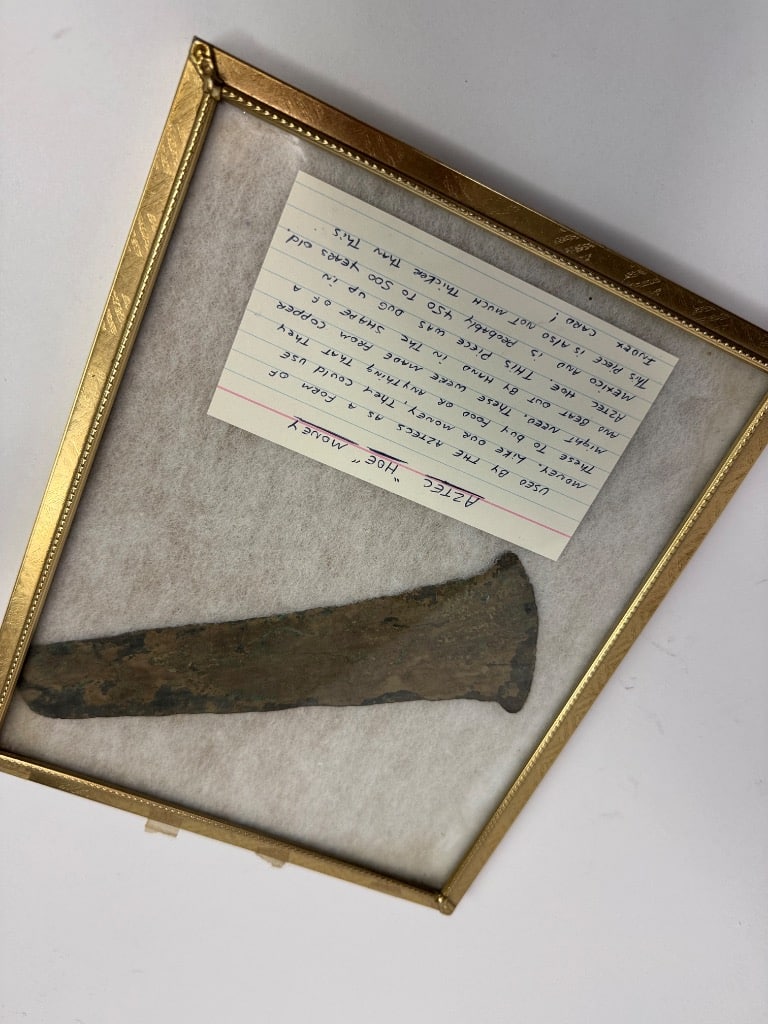 AZTEC "HOE" MONEY
USED BY THE AZTECS AS A FORM OF
MONEY. LIKE OUR MONEY, THEY COULD USE
THESE TO BUY FOOD OR ANYTHING THAT THEY
MIGHT NEED. THESE WERE MADE FROM COPPER
AND BEAT OUT BY HAND IN THE SHAPE OF A
AZTEC HOE. THIS PIECE WAS DUG UP IN
MEXICO AND IS PROBABLY 450 TO 500 YEARS OLD.
THIS PIECE IS ALSO NOT MUCH THICKER THAN THIS
INDEX CARD!